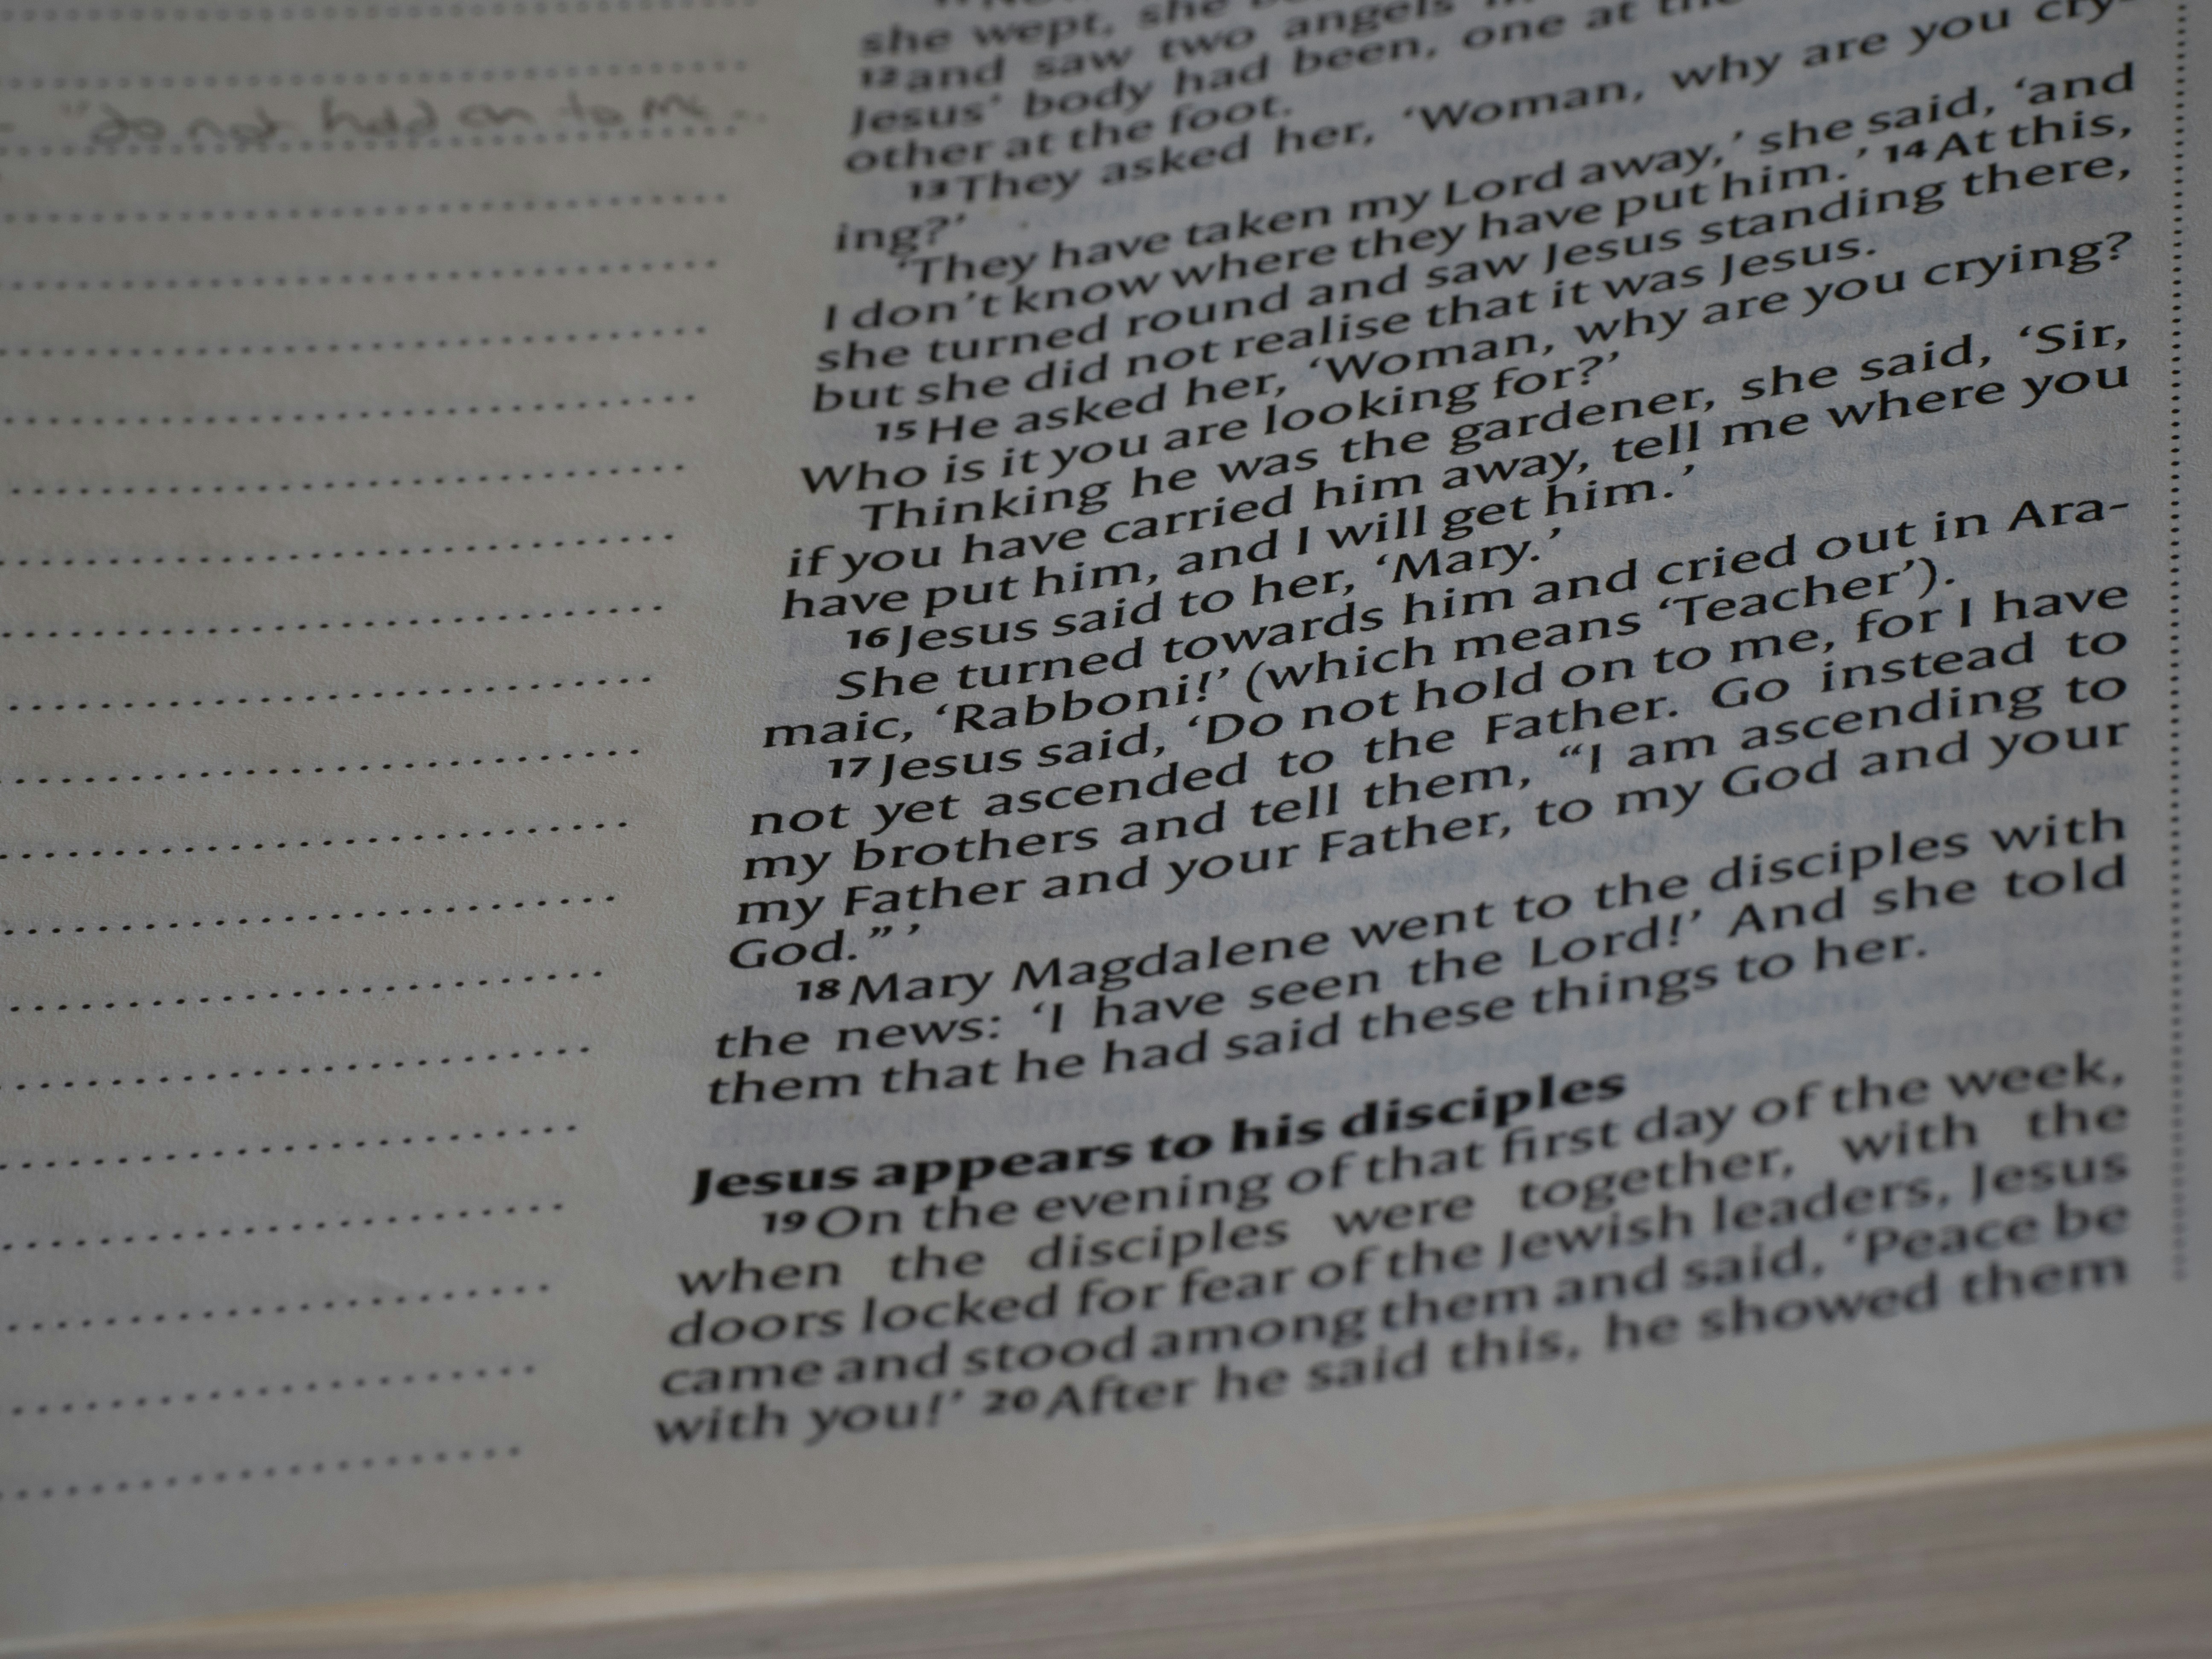 "do not hold on to me
she wept, she
12 and saw two angels
Jesus' body had been, one at the
other at the foot.
13 They asked her, 'Woman, why are you cry-
ing?'
'They have taken my Lord away,' she said, 'and
I don't know where they have put him.' 14 At this,
she turned round and saw Jesus standing there,
but she did not realise that it was Jesus.
15 He asked her, 'Woman, why are you crying?
Who is it you are looking for?'
Thinking he was the gardener, she said, 'Sir,
if you have carried him away, tell me where you
have put him, and I will get him.'
16 Jesus said to her, 'Mary.'
She turned towards him and cried out in Ara-
maic, 'Rabboni!' (which means 'Teacher').
17 Jesus said, 'Do not hold on to me, for I have
not yet ascended to the Father. Go instead to
my brothers and tell them, "I am ascending to
my Father and your Father, to my God and your
God." '
18 Mary Magdalene went to the disciples with
the news: 'I have seen the Lord!' And she told
them that he had said these things to her.
Jesus appears to his disciples
19 On the evening of that first day of the week,
when the disciples were together, with the
doors locked for fear of the Jewish leaders, Jesus
came and stood among them and said, 'Peace be
with you!' 20 After he said this, he showed them